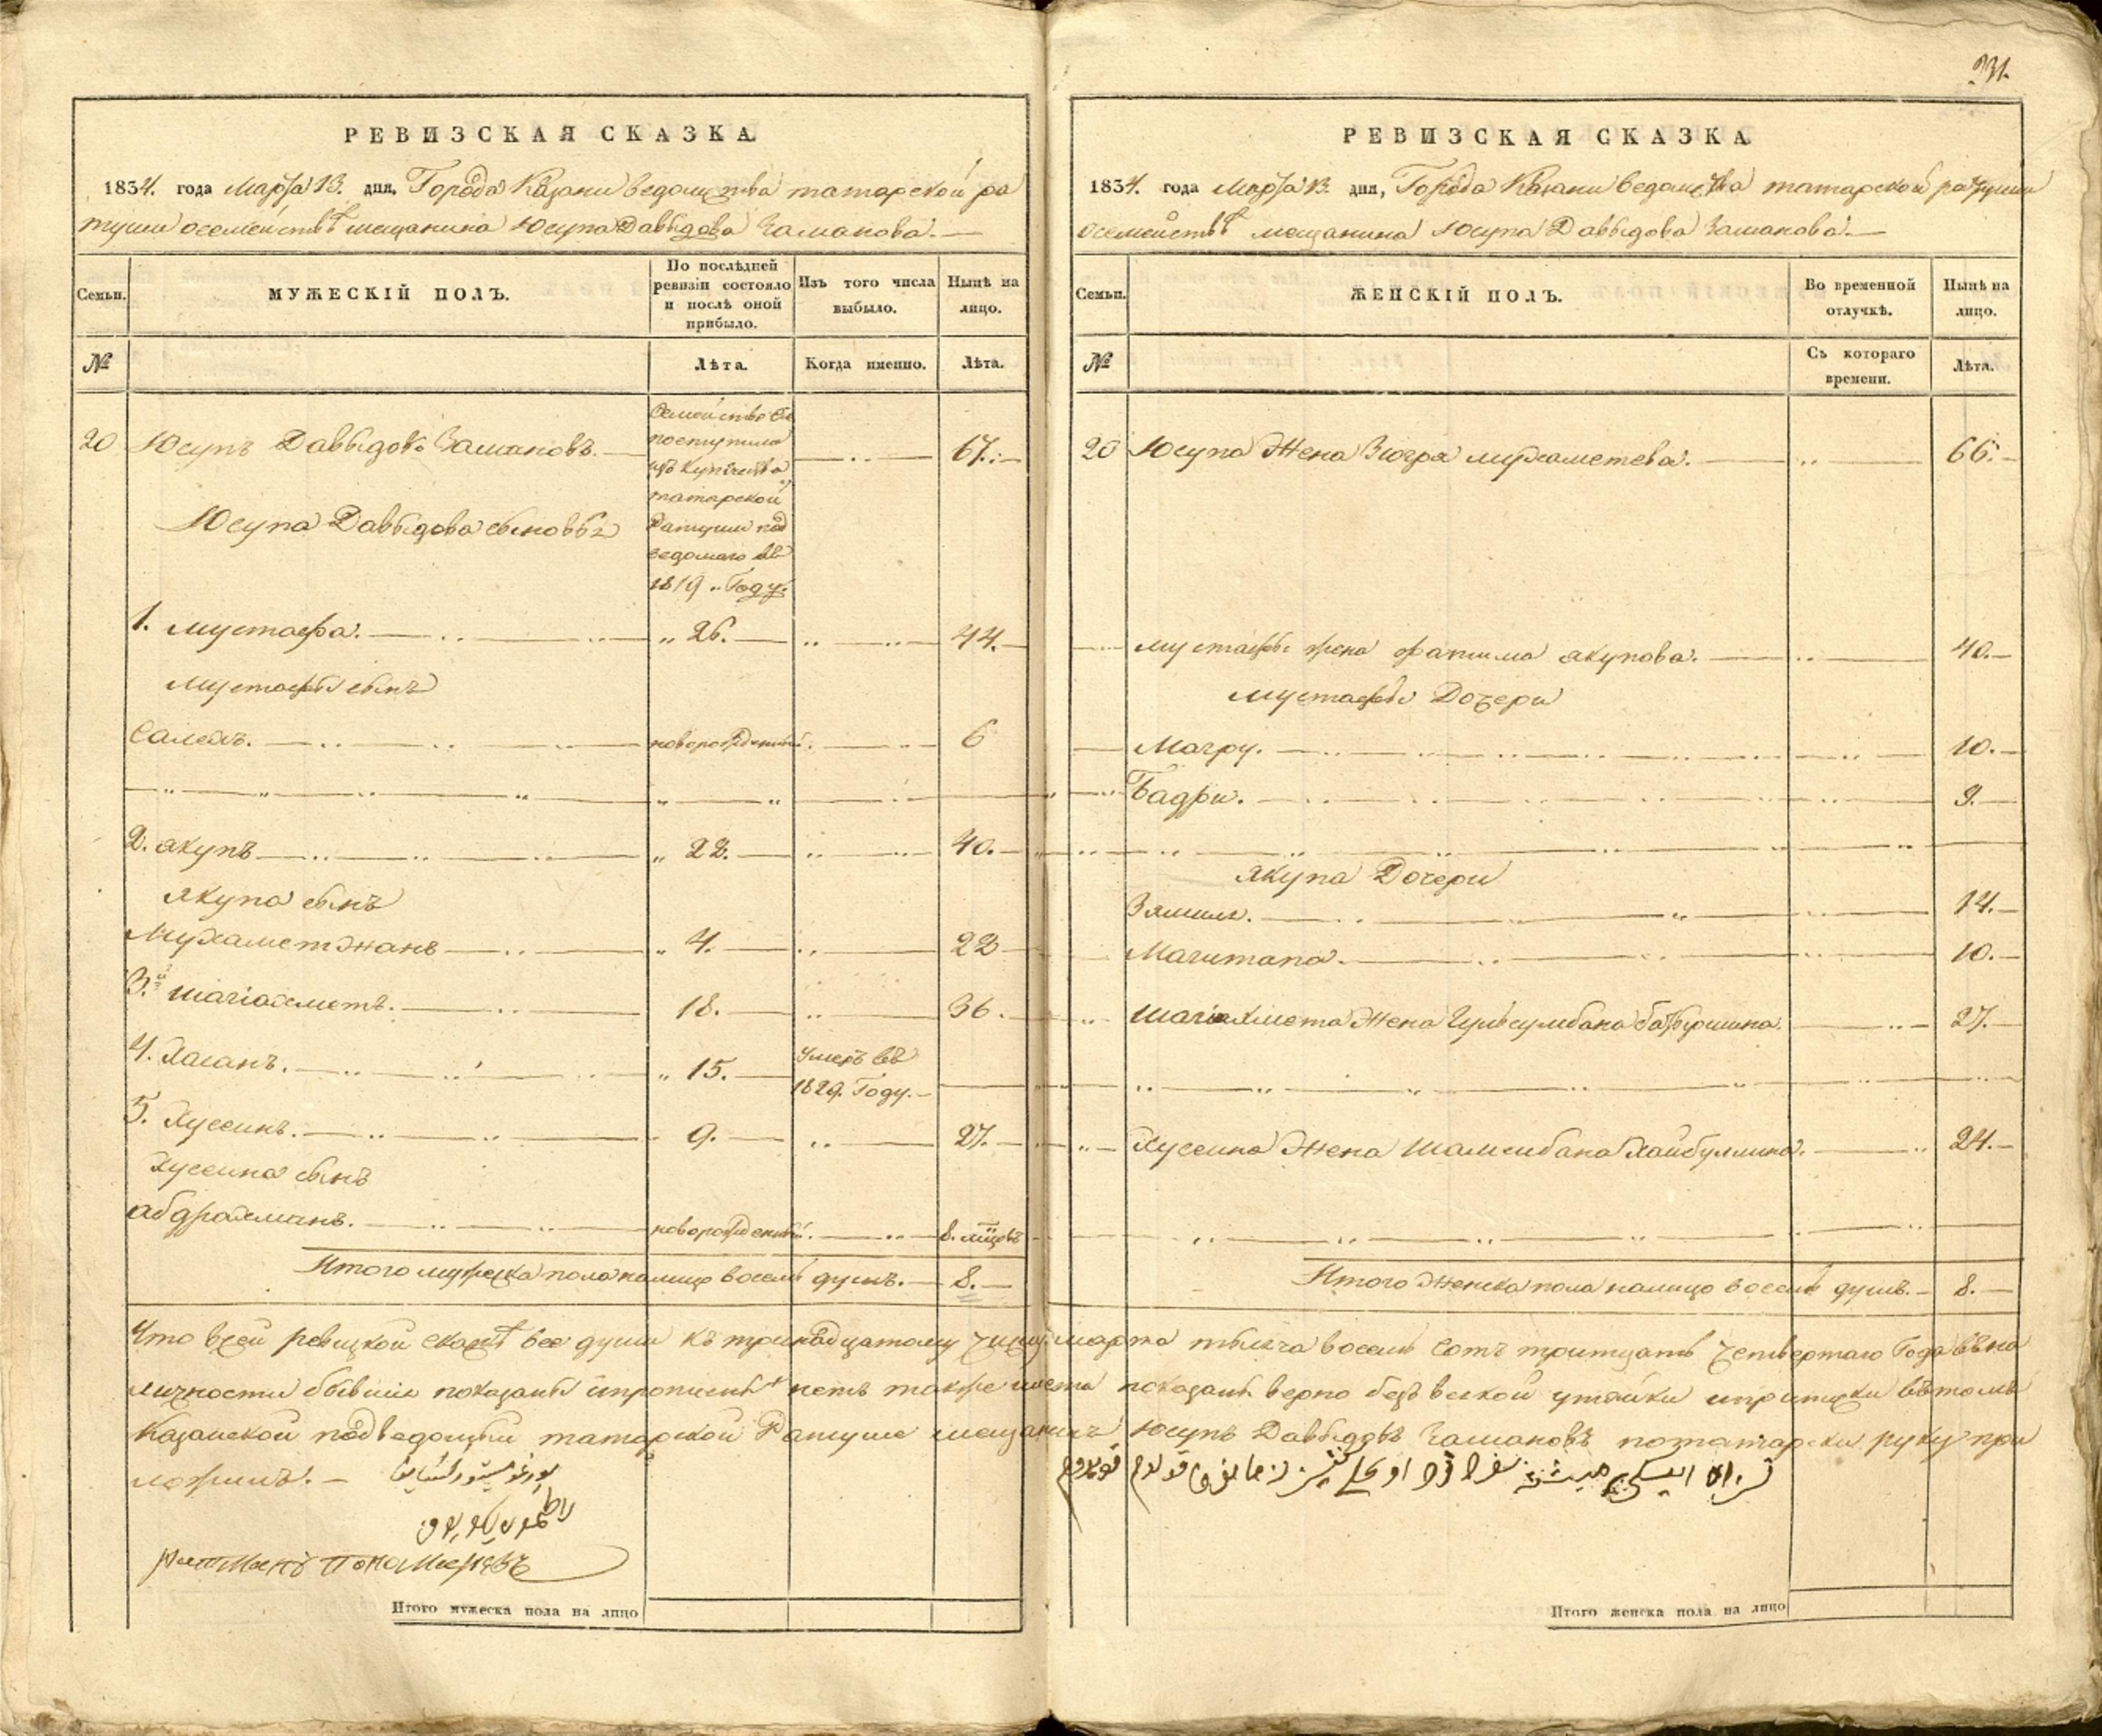 31.
РЕВИЗСКАЯ СКАЗКА
1834. года Марта 13. дня, Города Казани ведомства татарской ра
туши осемействѣ мещанина Юсупа Давыдова Заманова.
Семьи. МУЖЕСКІЙ ПОЛЪ. По послѣдней ревизіи состояло и послѣ оной прибыло. Изъ того числа выбыло. Нынѣ на лицо.
№ Лѣта. Когда именно. Лѣта.
20 Юсупъ Давыдовъ Замановъ. 67.
семейство
поступило
изъ купечества
татарской
Ратуши под
ведомаго въ
1819 Году.
Юсупа Давыдова сыновья
1. Мустафа. 26. 44.
Мустафы сынъ
Салехъ. новорожденный. 6
2. Якупъ 22. 40.
Якупа сынъ
Мухаметжанъ 4. 22
3. Шагіахметъ. 18. 36.
4. Хасанъ. 15. умеръ въ 1829. Году.
5. Хуссинъ. 9. 27.
Хуссина сынъ
Абдрахманъ. новорожденный. 8. мцовъ
Итого мужеска пола налицо восемь душъ. 8.
РЕВИЗСКАЯ СКАЗКА
1834. года Марта 13. дня, Города Казани ведомства татарской ратуши
осемействѣ мещанина Юсупа Давыдова Заманова.
Семьи. ЖЕНСКІЙ ПОЛЪ. Во временной отлучкѣ. Нынѣ на лицо.
№ Съ котораго времени. Лѣта.
20 Юсупа Жена Зюгря Мухаметева. 66.
Мустафы жена Фатима Якупова. 40.
Мустафы Дочери
Магру. 10.
Бадри. 9.
Якупа Дочери
14.
Магитапа. 10.
Шагіахмета Жена Гульсумбана 27.
Хуссина Жена Шамсибана Хайбуллина. 24.
Итого Женска пола налицо восемь душъ. 8.
Что всей ревизкой сказкѣ все души къ тринадцатому числу марта тысяча восемь сотъ тритцать четвертаго Года въ на
личности бывшие показаны ипрописныхъ нетъ также лета показаны верно безъ всякой утайки иприписки вътомъ
Казанской подведомый татарской Ратуше мещанинъ Юсупъ Давыдовъ Замановъ потатарски руку при
ложилъ.
Ратманъ Пономаревъ
Итого мужеска пола на лицо
Итого женска пола на лицо